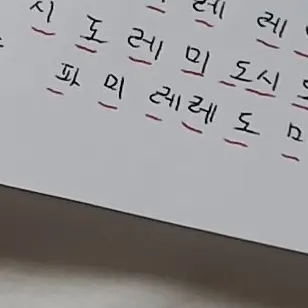 레 레
시 도 레 미 도 시
파 미 레 레 도